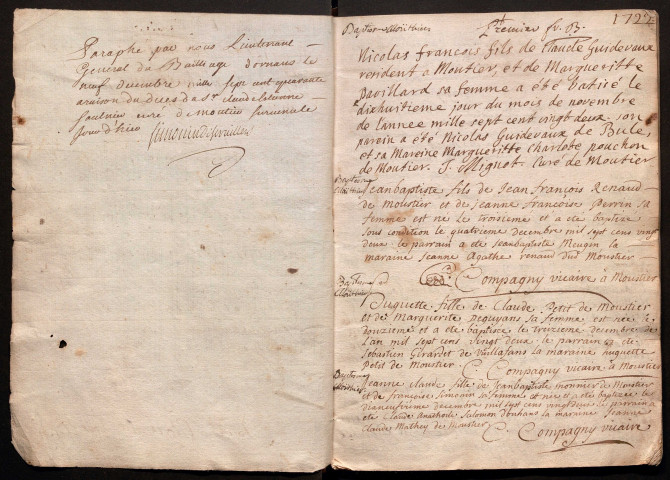 Paraphe par nous Lieutenant
General du Bailliage d'ornans le
neuf decembre mille sept cent quarante
a raison du deces du Sr claude etienne
cure de moutier survenu le
jour d'hier
Baptes Moûthier
Premier fr. B.
1722
Nicolas francois fils de Claude Guidevaux
resident a Moutier, et de Margueritte
pavillard sa femme a été batisé le
dixhuitieme jour du mois de novembre
de l'année mille sept cent vingt deux. son
parein a été Nicolas Guidevaux de Bule,
et sa Mareine Margueritte Charlote pouchon
de Moutier. J. Mignot. Curé de Moutier
Jean baptiste fils de Jean françois Renaud
de Moustier et de Jeanne francoise perrin sa
femme est né le troisieme et a ete baptizé
sous condition le quatrieme decembre mil sept cens vingt
deux le parrain a ete Jeanbaptiste Meugin la
maraine Jeanne Agathe renaud dud Moustier
Compagny vicaire à Moustier
huguette fille de Claude Petit de Moustier
et de Marguerite peguyans sa femme est née le
douzieme et a ete baptisée le treizieme decembre de
l'an mil sept cens vingt deux le parrain a ete
Sebastien Girardet de Vuillafans la maraine huguette
petit de Moustier. C. Compagny vicaire à Moustier
Jeanne claude fille de Jeanbaptiste monnier de Moustier
et de françoise Simonin sa femme est née et a ete baptizée le
dixneufvieme decembre mil sept cens vingt deux le parrain a
ete Claude Anathoile Salomon d'ouhans la maraine Jeanne
Claude Mathey de Moustier C. Compagny vicaire